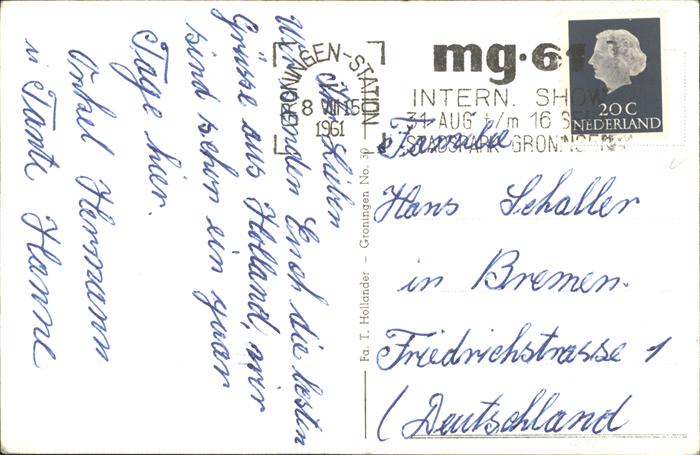 Ihr Lieben
Wir senden Euch die besten
Grüsse aus Holland, wir
sind schon ein paar
Tage hier.
Onkel Hermann
u Tante Hanne
GRONINGEN-STATION
8 VIII 15
1961
mg·61
INTERN. SHOW
31 AUG t/m 16 SEP
STADSPARK GRONINGEN
20 C
NEDERLAND
Fa. T. Hollander – Groningen No. 39
Familie
Hans Schaller
in Bremen.
Friedrichstrasse 1
(Deutschland